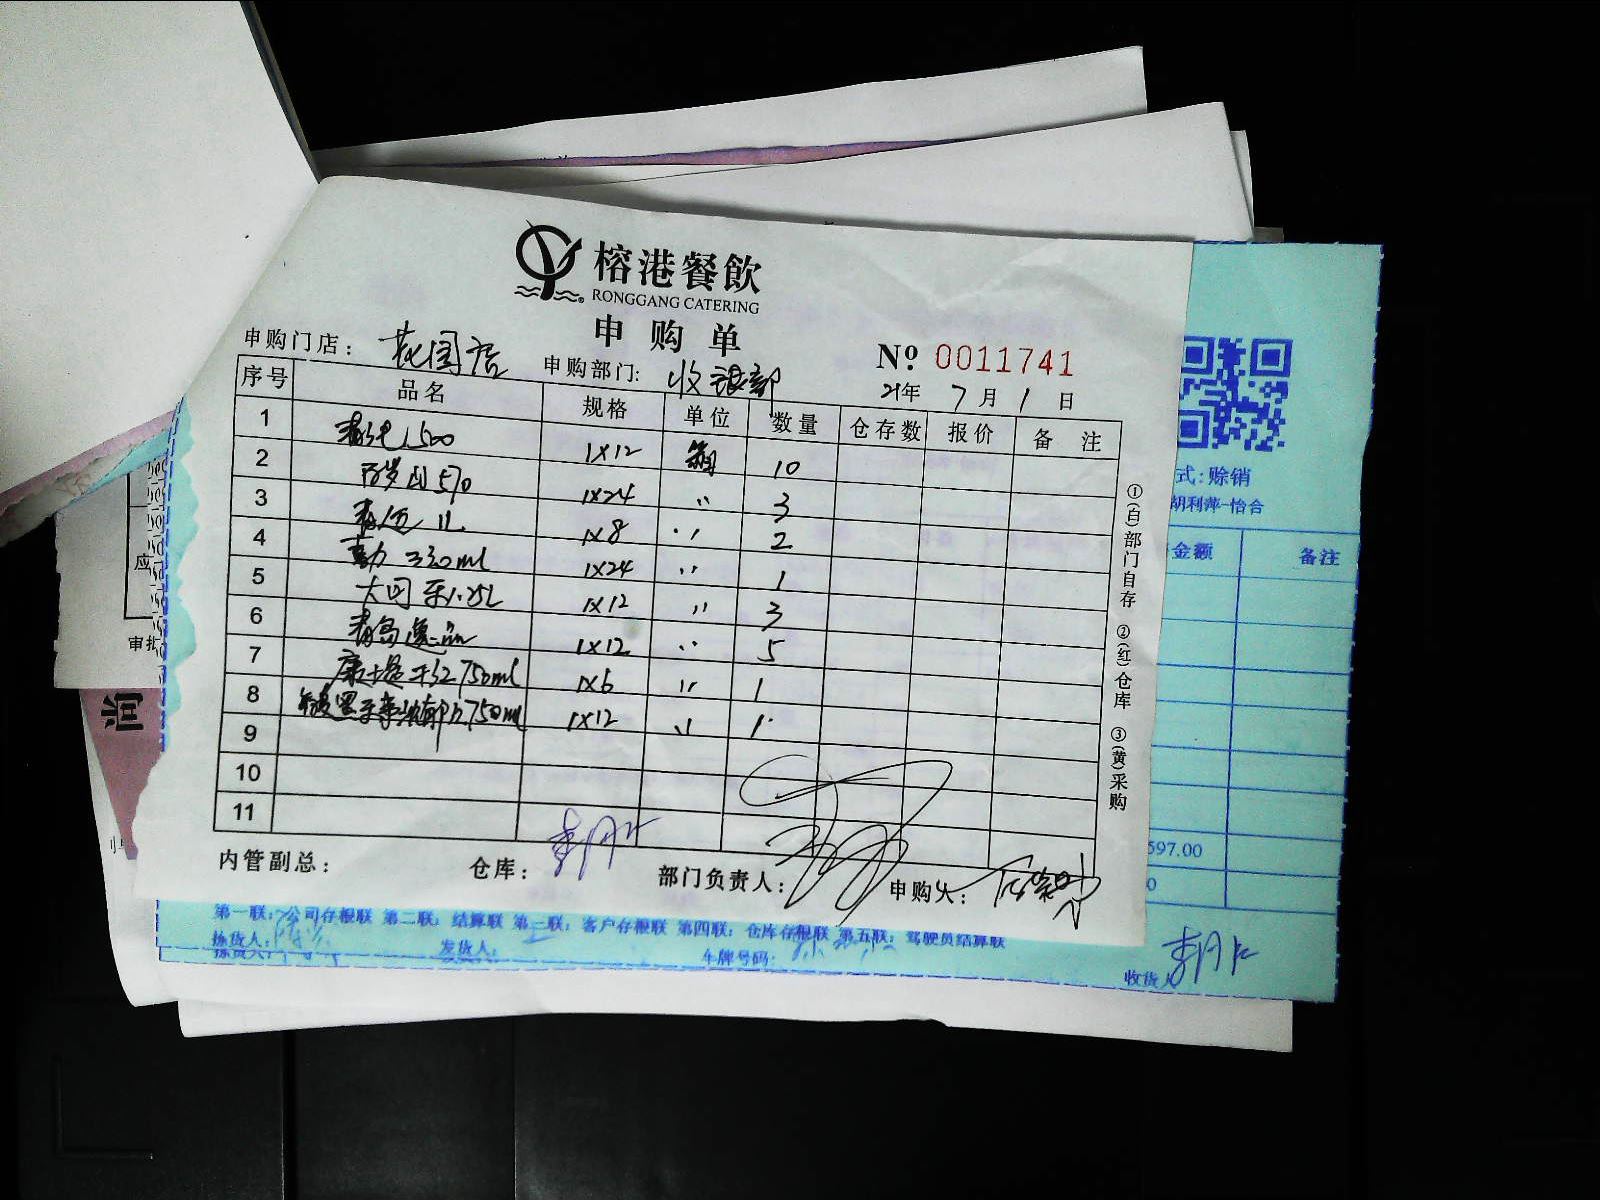 榕港餐飲
RONGGANG CATERING
申购单
申购门店: 花园店 申购部门: 收银部 № 0011741
21年 7 月 1 日
序号 品名 规格 单位 数量 仓存数 报价 备 注
1 500 1X12 箱 10
2 570 1X24 〃 3
3 1L 1X8 〃 2
4 喜力 330ml 1X24 〃 1
5 1.25L 1X12 〃 3
6 青岛 1X12 〃 5
7 干红750ml 1X6 〃 1
8 750ml 1X12 〃 1
9
10
11
内管副总: 仓库: 部门负责人: 申购人:
①(白)部门自存 ②(红)仓库 ③(黄)采购
式: 赊销
胡利萍-怡合
金额 备注
597.00
0
第一联: 公司存根联 第二联: 结算联 第三联: 客户存根联 第四联: 仓库存根联 第五联: 驾驶员结算联
拣货人: 发货人: 车牌号码: 收货人
应
审批
润